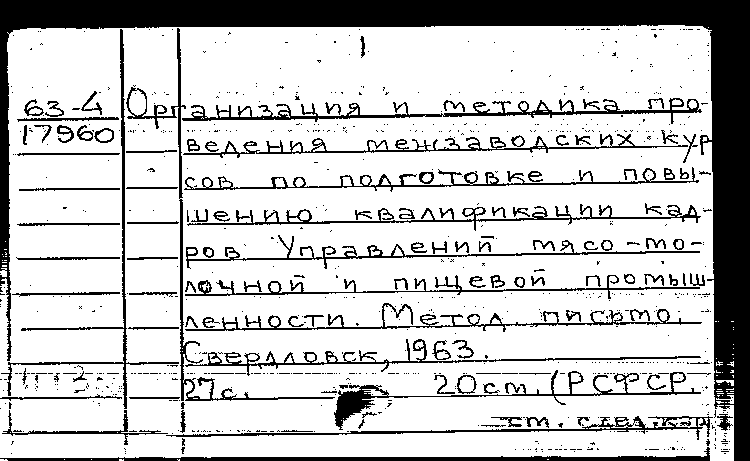 63-4 Организация и методика про-
17960 ведения межзаводских кур
сов по подготовке и повы-
шению квалификации кад-
ров Управлений мясо-мо-
лочной и пищевой промыш-
ленности. Метод. письмо.
Свердловск, 1963.
27с. 20см. (РСФСР.
см. след. кар